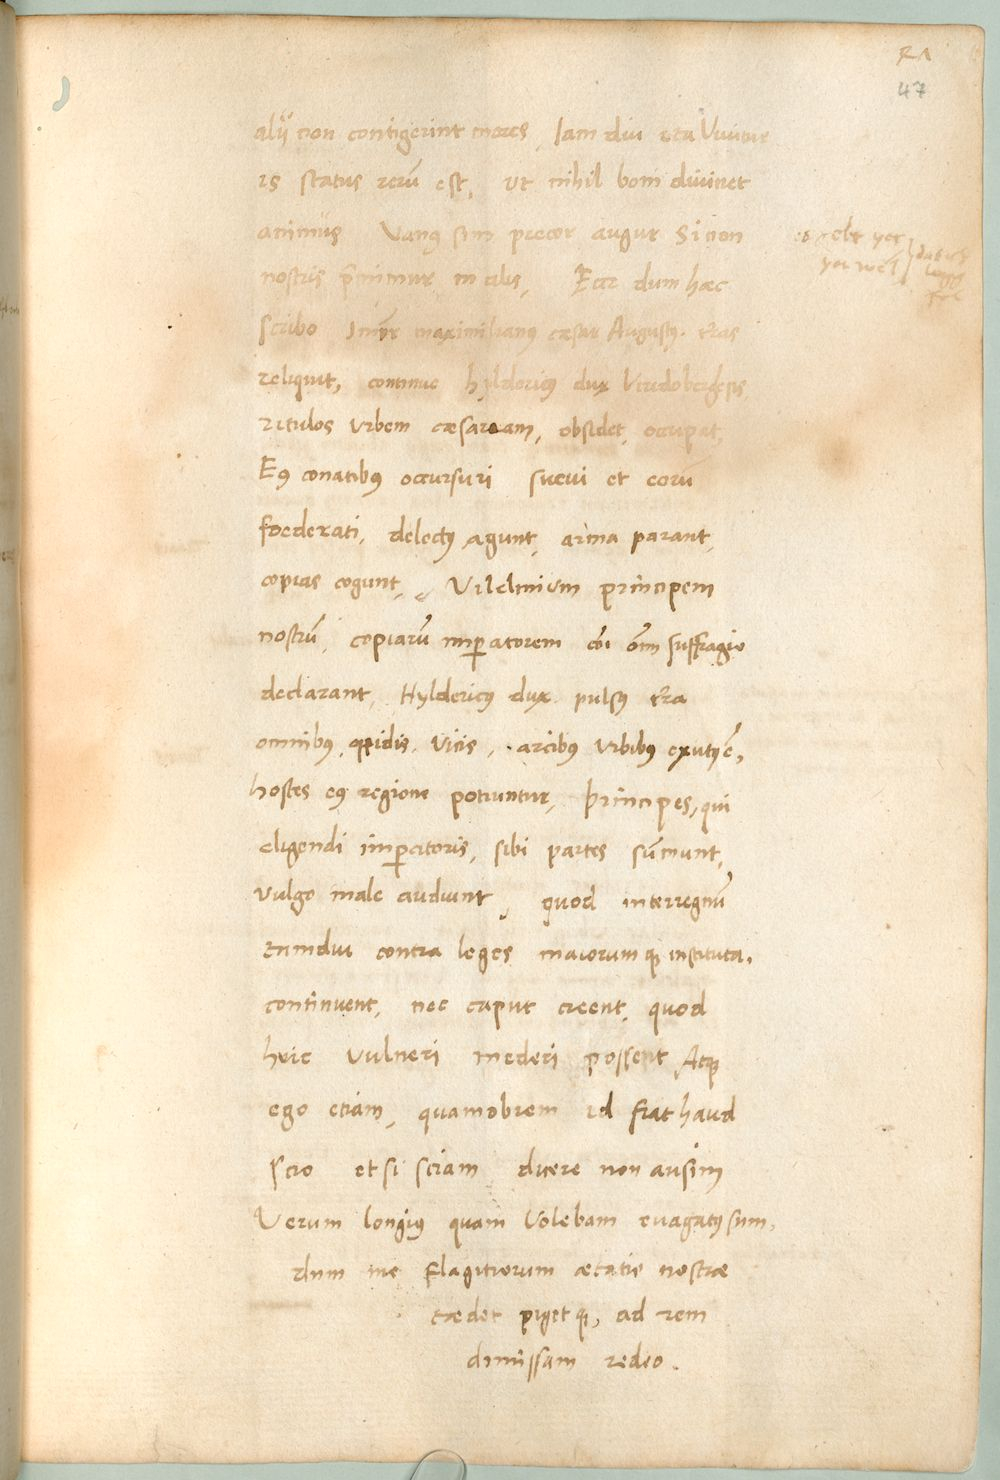 47
alij non contigerint mores, Iam diu ita Vivitur
is status rerū est, ut nihil boni divinet
animus Vanꝰ sim precor augur Si non
nostris p̄mimur malis, Ecce dum hæc
scribo Imꝑr maximilianꝰ cæsar Augustꝰ. terras
reliquit, continuo hyldericꝰ dux Vindobergēsis
titulos urbem cæsaream, obsidet, occupat,
Eiꝰ conatibꝰ occursuri suevi et eorū
foederati, delectꝰ agunt, arma parant,
copias cogunt, Vilelmium principem
nostrū, copiarū imꝑatorem cōi oīm suffragio
declarant, Hyldericꝰ dux pulsꝰ terra
omnibꝰ oppidis. Vicis, arcibꝰ urbibꝰ exutꝰ ē,
hostes eiꝰ regione potiuntur, principes, qui
eligendi imꝑatoris, sibi partes sūmunt,
vulgo male audiunt, quod interregnū
tamdiu contra leges maiorumqꝫ instituta,
continuent, nec caput creent, quod
huic vulneri mederi possent, Atqꝫ
ego etiam, quamobrem id fiat haud
scio et si sciam dicere non ausim
Verum longiꝰ quam Volebam evagatꝰ sum,
dum me flagitiorum ætatis nostræ
tædet pigetqꝫ, ad rem
dimissam redeo.